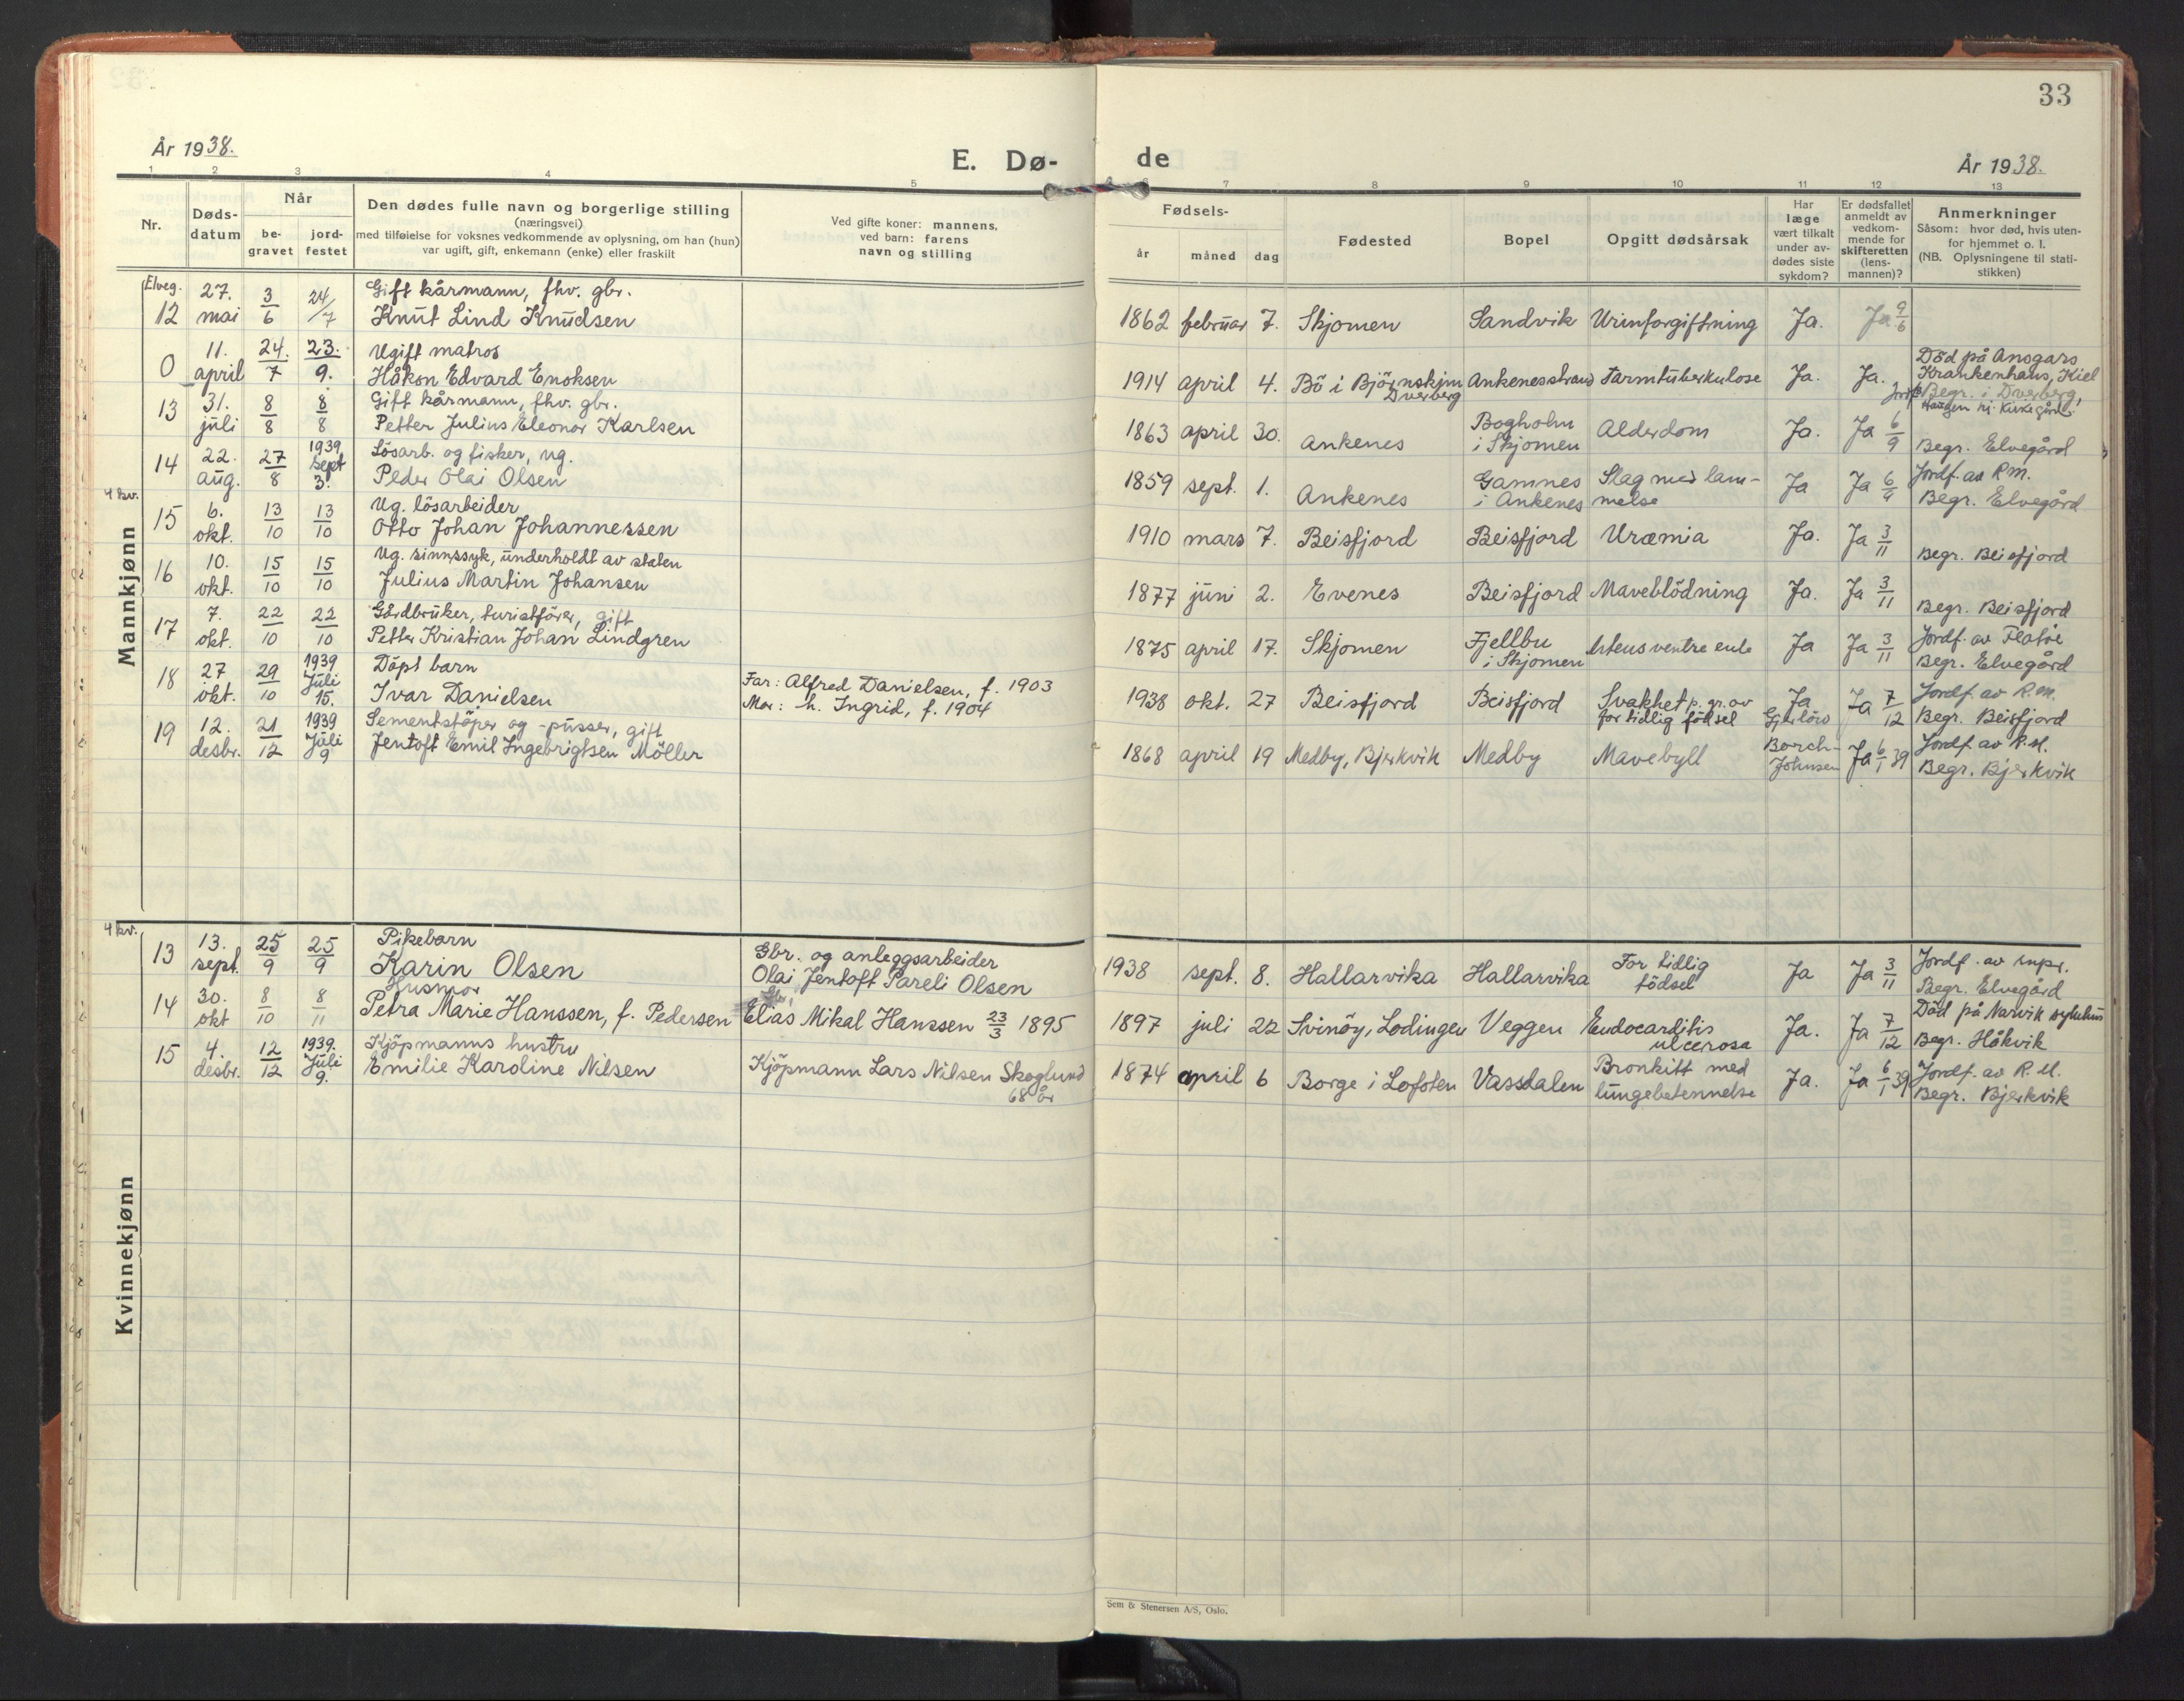 33
År 1938.
E. Dø-
de
År 1938.
1 2 3 4 5 6 7 8 9 10 11 12 13
Nr.
Døds-
datum
Når
be-
gravet
jord-
festet
Den dødes fulle navn og borgerlige stilling
(næringsvei)
med tilføielse for voksnes vedkommende av oplysning, om han (hun)
var ugift, gift, enkemann (enke) eller fraskilt
Ved gifte koner: mannens,
ved barn: farens
navn og stilling
Fødsels-
år
måned
dag
Fødested
Bopel
Opgitt dødsårsak
Har
læge
vært tilkalt
under av-
dødes siste
sykdom?
Er dødsfallet
anmeldt av
vedkom-
mende for
skifteretten
(lens-
mannen)?
Anmerkninger
Såsom: hvor død, hvis uten-
for hjemmet o. l.
(NB. Oplysningene til stati-
stikken)
Mannkjønn
Elveg.
12 27. mai 3/6 24/7 Gift kårmann, fhv. gbr.
Knut Lind Knudsen
1862 februar 7. Skjomen Sandvik Urinforgiftning Ja. Ja 9/6
0 11. april 24./7 23./9. Ugift matros
Håkon Edvard Enoksen
1914 april 4. Bö i Björnskinn Dverberg Ankenesstrand Tarmtuberkulose Ja. Ja.
Död på Ansgars
Krankenhaus, Kiel
Begr. i Dverberg,
13 31. juli 8/8 8/8 Gift kårmann, fhv. gbr.
Petter Julius Eleonor Karlsen
1863 april 30. Ankenes Bogholm i Skjomen Alderdom Ja. Ja 6/9
Begr. Elvegård
14 22. aug. 27/8 1939, sept 3. Lösarb. og fisker, ug.
Peder Olai Olsen
1859 sept. 1. Ankenes Gamnes i Ankenes Slag med lam-
melse Ja Ja 6/9
Jordf. av R.M.
Begr. Elvegård
4 kv.
15 6. okt. 13/10 13/10 Ug. lösarbeider
Otto Johan Johannessen
1910 mars 7. Beisfjord Beisfjord Uræmia Ja. Ja 3/11
Begr. Beisfjord
16 10. okt. 15/10 15/10 Ug. sinnssyk, underholdt av staten
Julius Martin Johansen
1877 juni 2. Evenes Beisfjord Maveblödning Ja. Ja 3/11
Begr. Beisfjord
17 7. okt. 22/10 22/10 Gårdbruker, turistförer, gift
Petter Kristian Johan Lindgren
1875 april 17. Skjomen Fjellbu i Skjomen Ja Ja 3/11
Begr. Elvegård
18 27 okt. 29/10 1939 Juli 15. Döpt barn
Ivar Danielsen
Far: Alfred Danielsen, f. 1903
Mor: h. Ingrid, f. 1904
1938 okt. 27 Beisfjord Beisfjord Svakhet p. gr. av
for tidlig födsel Ja Ja 7/12
Jordf. av R.M.
Begr. Beisfjord
19 12. desbr. 21/12 1939 Juli 9 Sementstöper og -pusser, gift
Jentoft Emil Ingebrigtsen Möller
1868 april 19 Medby, Bjerkvik Medby Mavebyll Borch-
Johnsen Ja 6/1 39
Jordf. av R.M.
Begr. Bjerkvik
Kvinnekjønn
4 kv.
13 13. sept. 25/9 25/9 Pikebarn
Karin Olsen
Gbr. og anleggsarbeider
Olai Jentoft Pareli Olsen
1938 sept. 8. Hallarvika Hallarvika For tidlig
födsel Ja Ja 3/11
Jordf. av snpr.
Begr. Elvegård
14 30. okt 8/10 8/11 Husmor
Petra Marie Hanssen, f. Pedersen
Elias Mikal Hanssen 23/3 1895
1897 juli 22 Svinöy, Lodingen Veggen Endocarditis
ulcerosa Ja. Ja 7/12
Död på Narvik sykehus
Begr. Håkvik
15 4. desbr. 12/12 1939. Juli 9. Kjöpmanns hustru
Emilie Karoline Nilsen
Kjöpmann Lars Nilsen Skoglund
68 år
1874 april 6 Borge i Lofoten Vassdalen Bronkitt med
lungebetennelse Ja. Ja 6/1 39
Jordf. av R.M.
Begr. Bjerkvik
Sem & Stenersen A/S, Oslo.